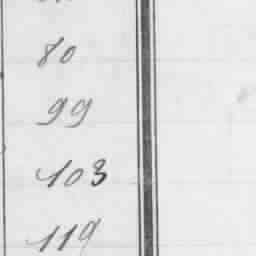 80
99
103
119